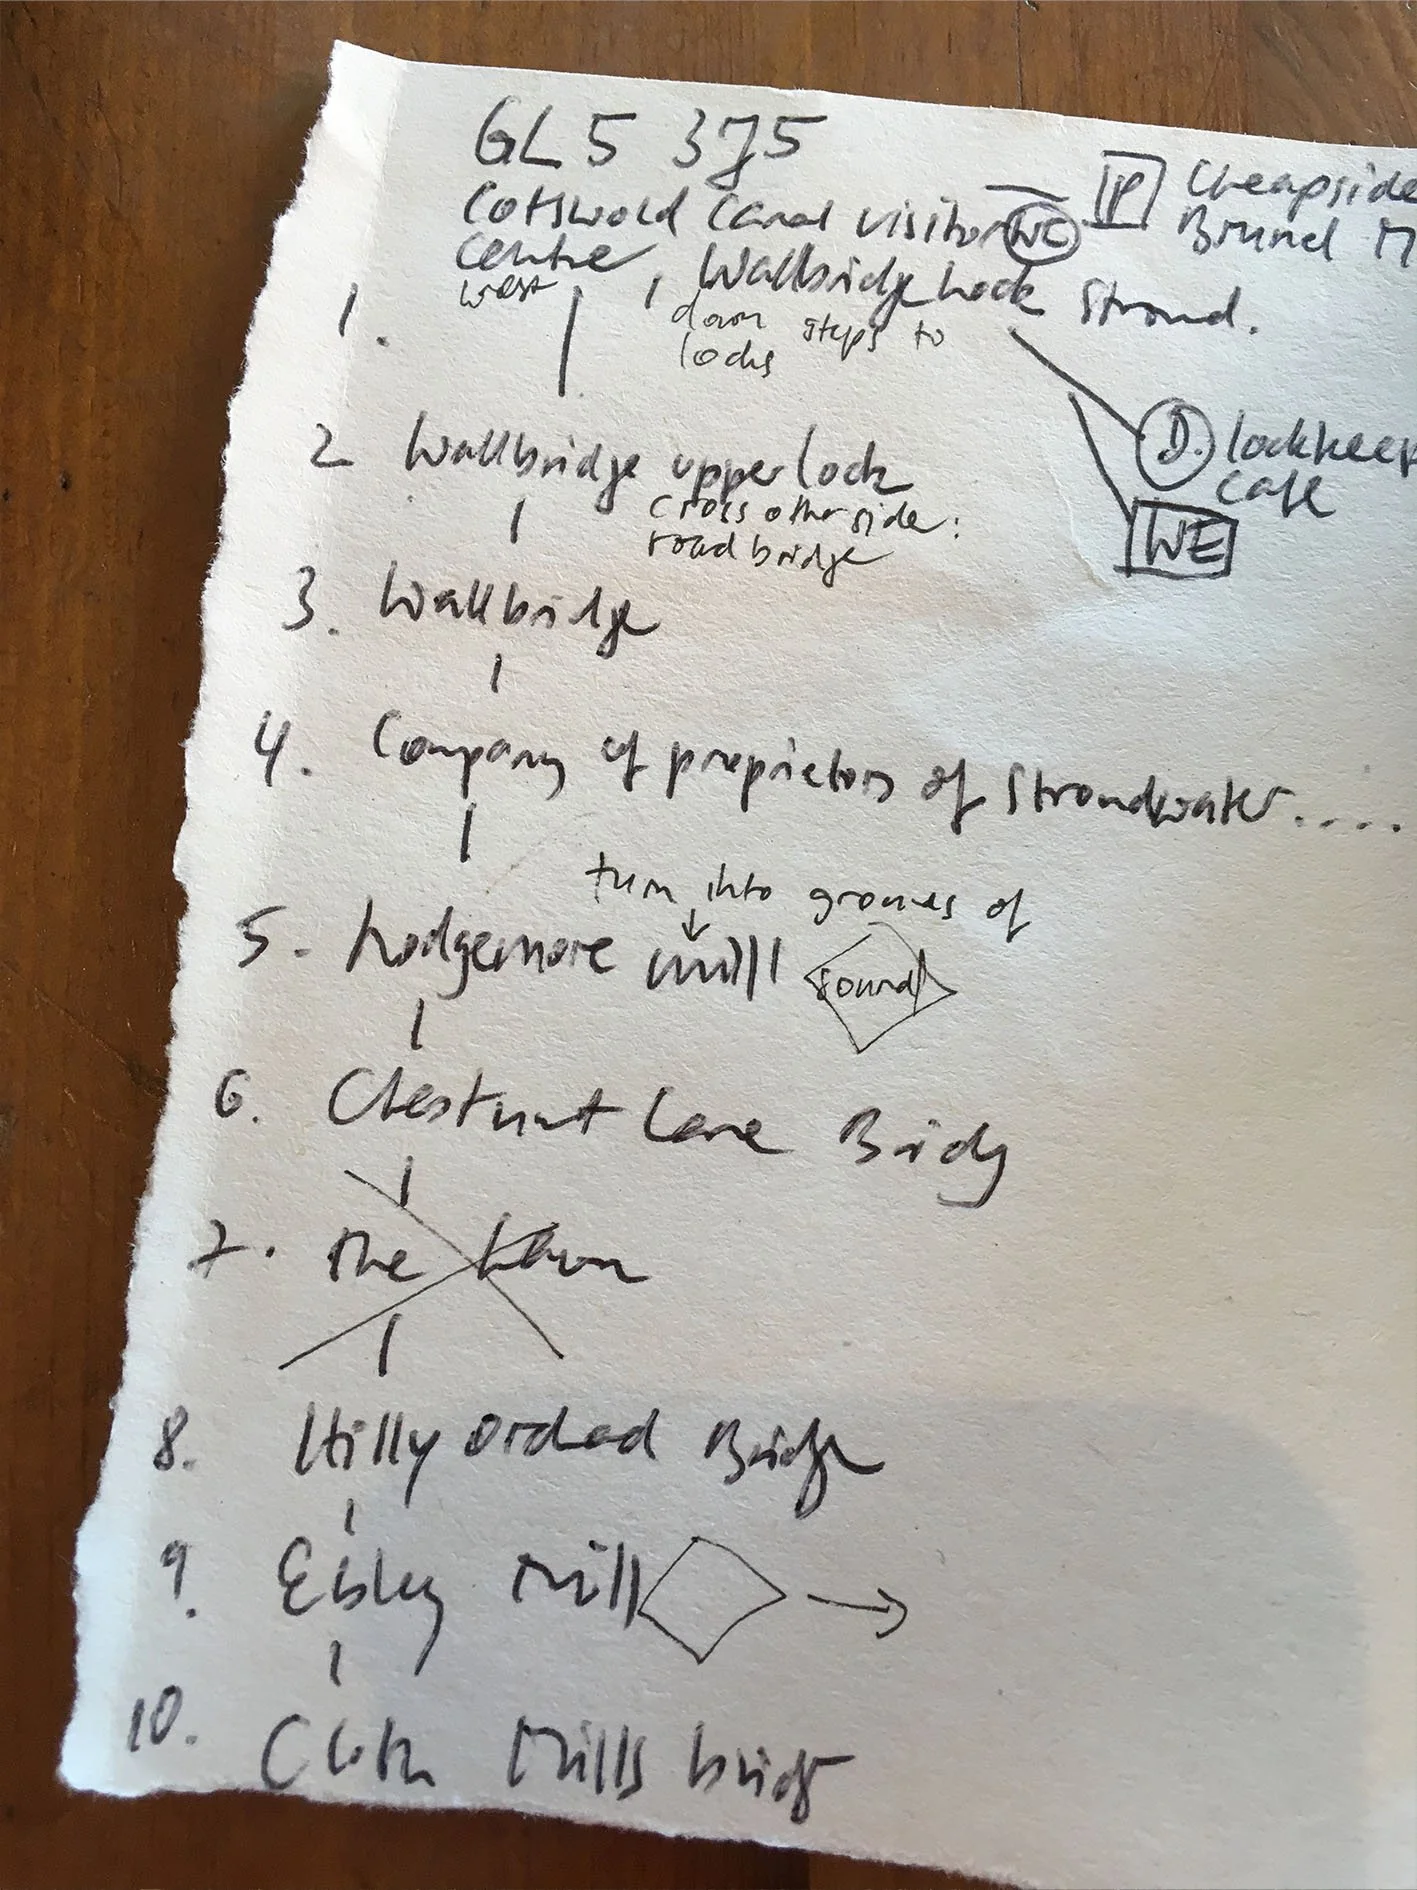 GL5 3JS
P Cheapside
Cotswold Canal visitor WC Brunel M
centre, Wallbridge Lock Stroud.
west
1.
down steps to
locks
D. lockkeep
cafe
WE
2 Wallbridge upper lock
cross other side:
road bridge
3. Wallbridge
4. Company of proprietors of Stroudwater....
turn into grounds of
5. Lodgemore mill round
6. Chestnut Lane Bridg
7. The Lawn
8. Hilly Orchad Bridge
9. Ebley Mill
10. Cloth Mills bridg